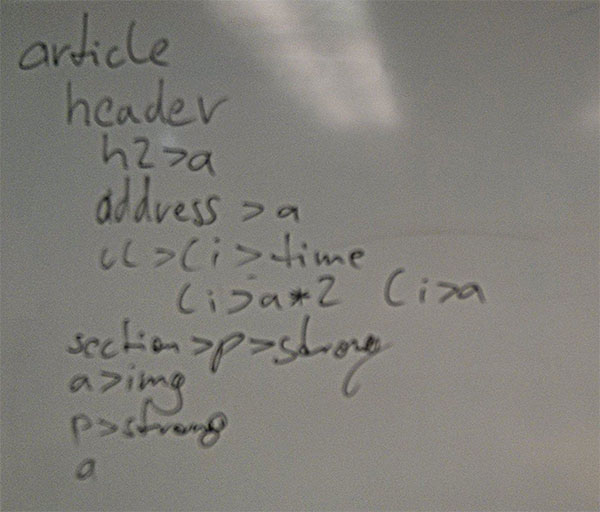 article
header
h2>a
address >a
ul>li>time
li>a*2 li>a
section>p>strong
a>img
p>strong
a